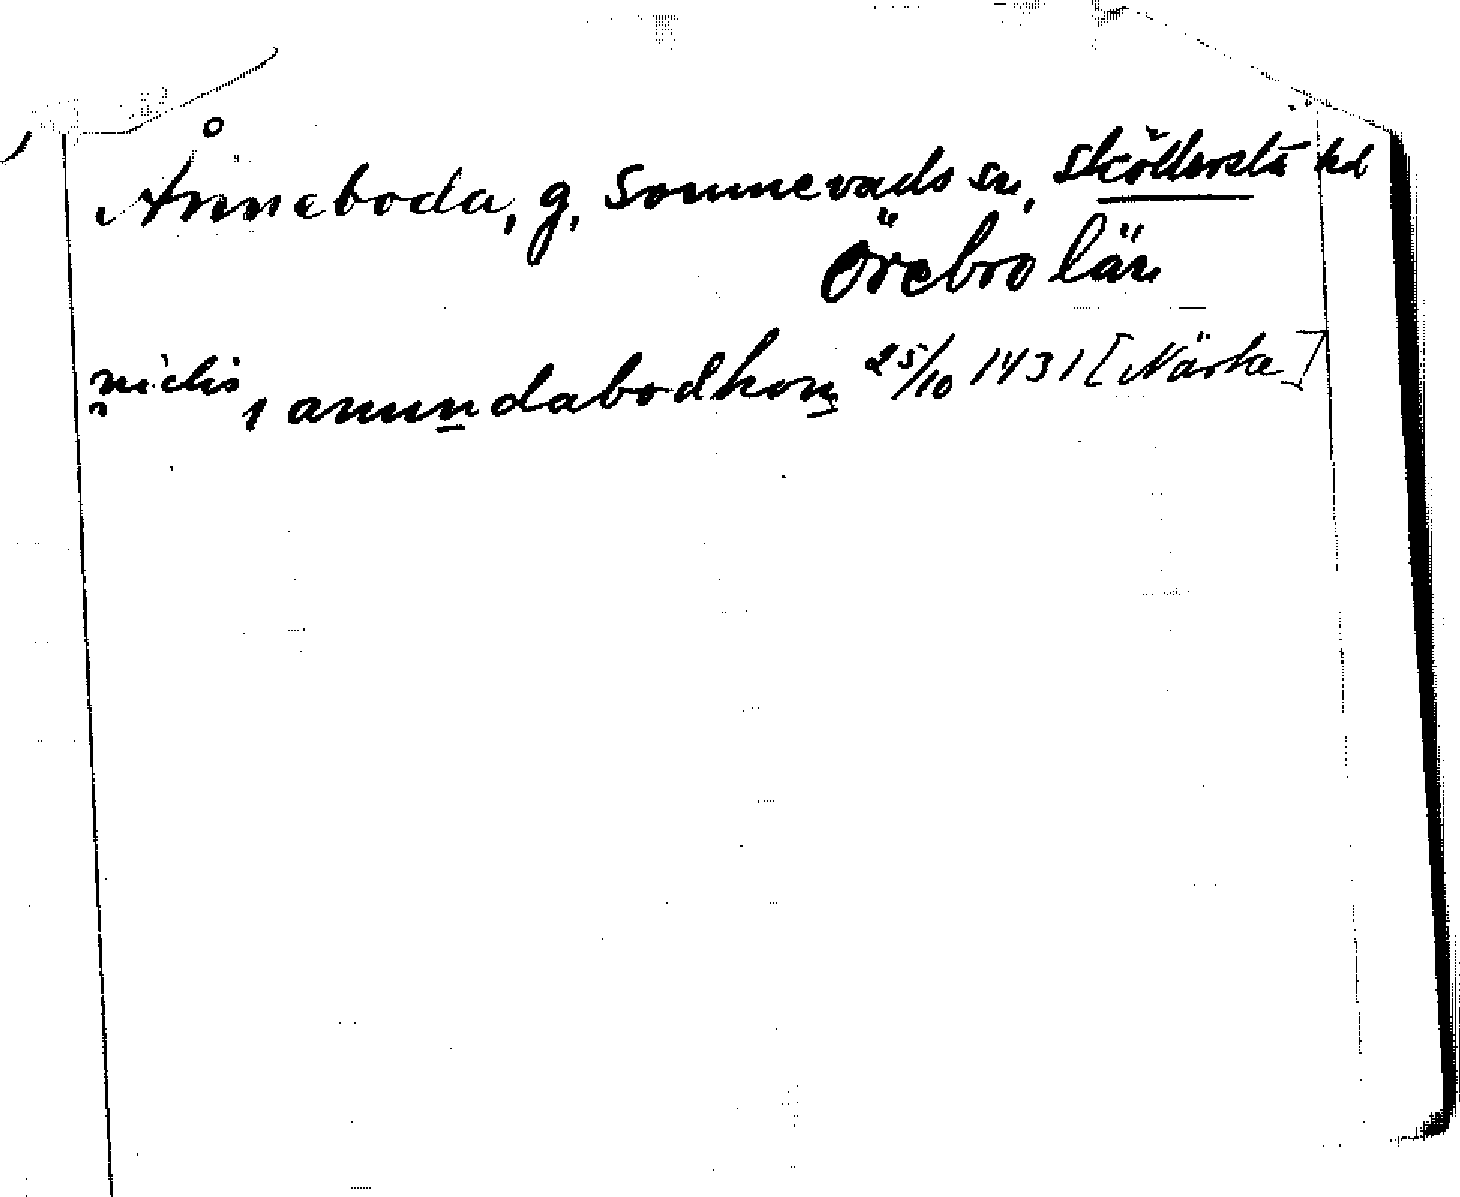 Ånneboda, g, Sonnevads sn, Sköllersta hd
Örebro län
niclis, i anundabodhom 25/10 1431 [Närke]